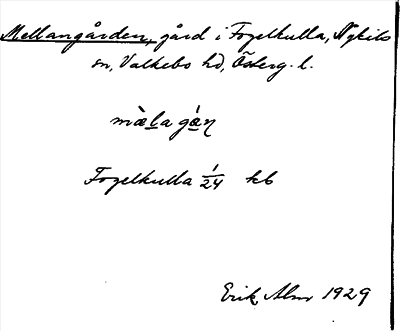 Mellangården, gård i Fogelkulla, Nykils
sn, Valkebo hd, Österg. l.
mæ̀la gɑ́ɳ
Fogelkulla 1/24 kb
Erik Alm 1929